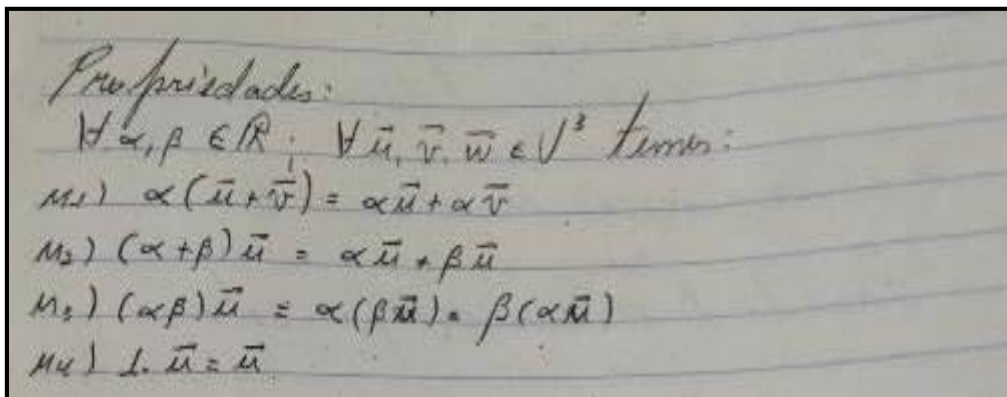 Propriedades:
∀ α, β ∈ ℝ; ∀ u⃗, v⃗, w⃗ ∈ V³ temos:
M1) α(u⃗ + v⃗) = αu⃗ + αv⃗
M2) (α + β)u⃗ = αu⃗ + βu⃗
M3) (αβ)u⃗ = α(βu⃗) = β(αu⃗)
M4) 1. u⃗ = u⃗